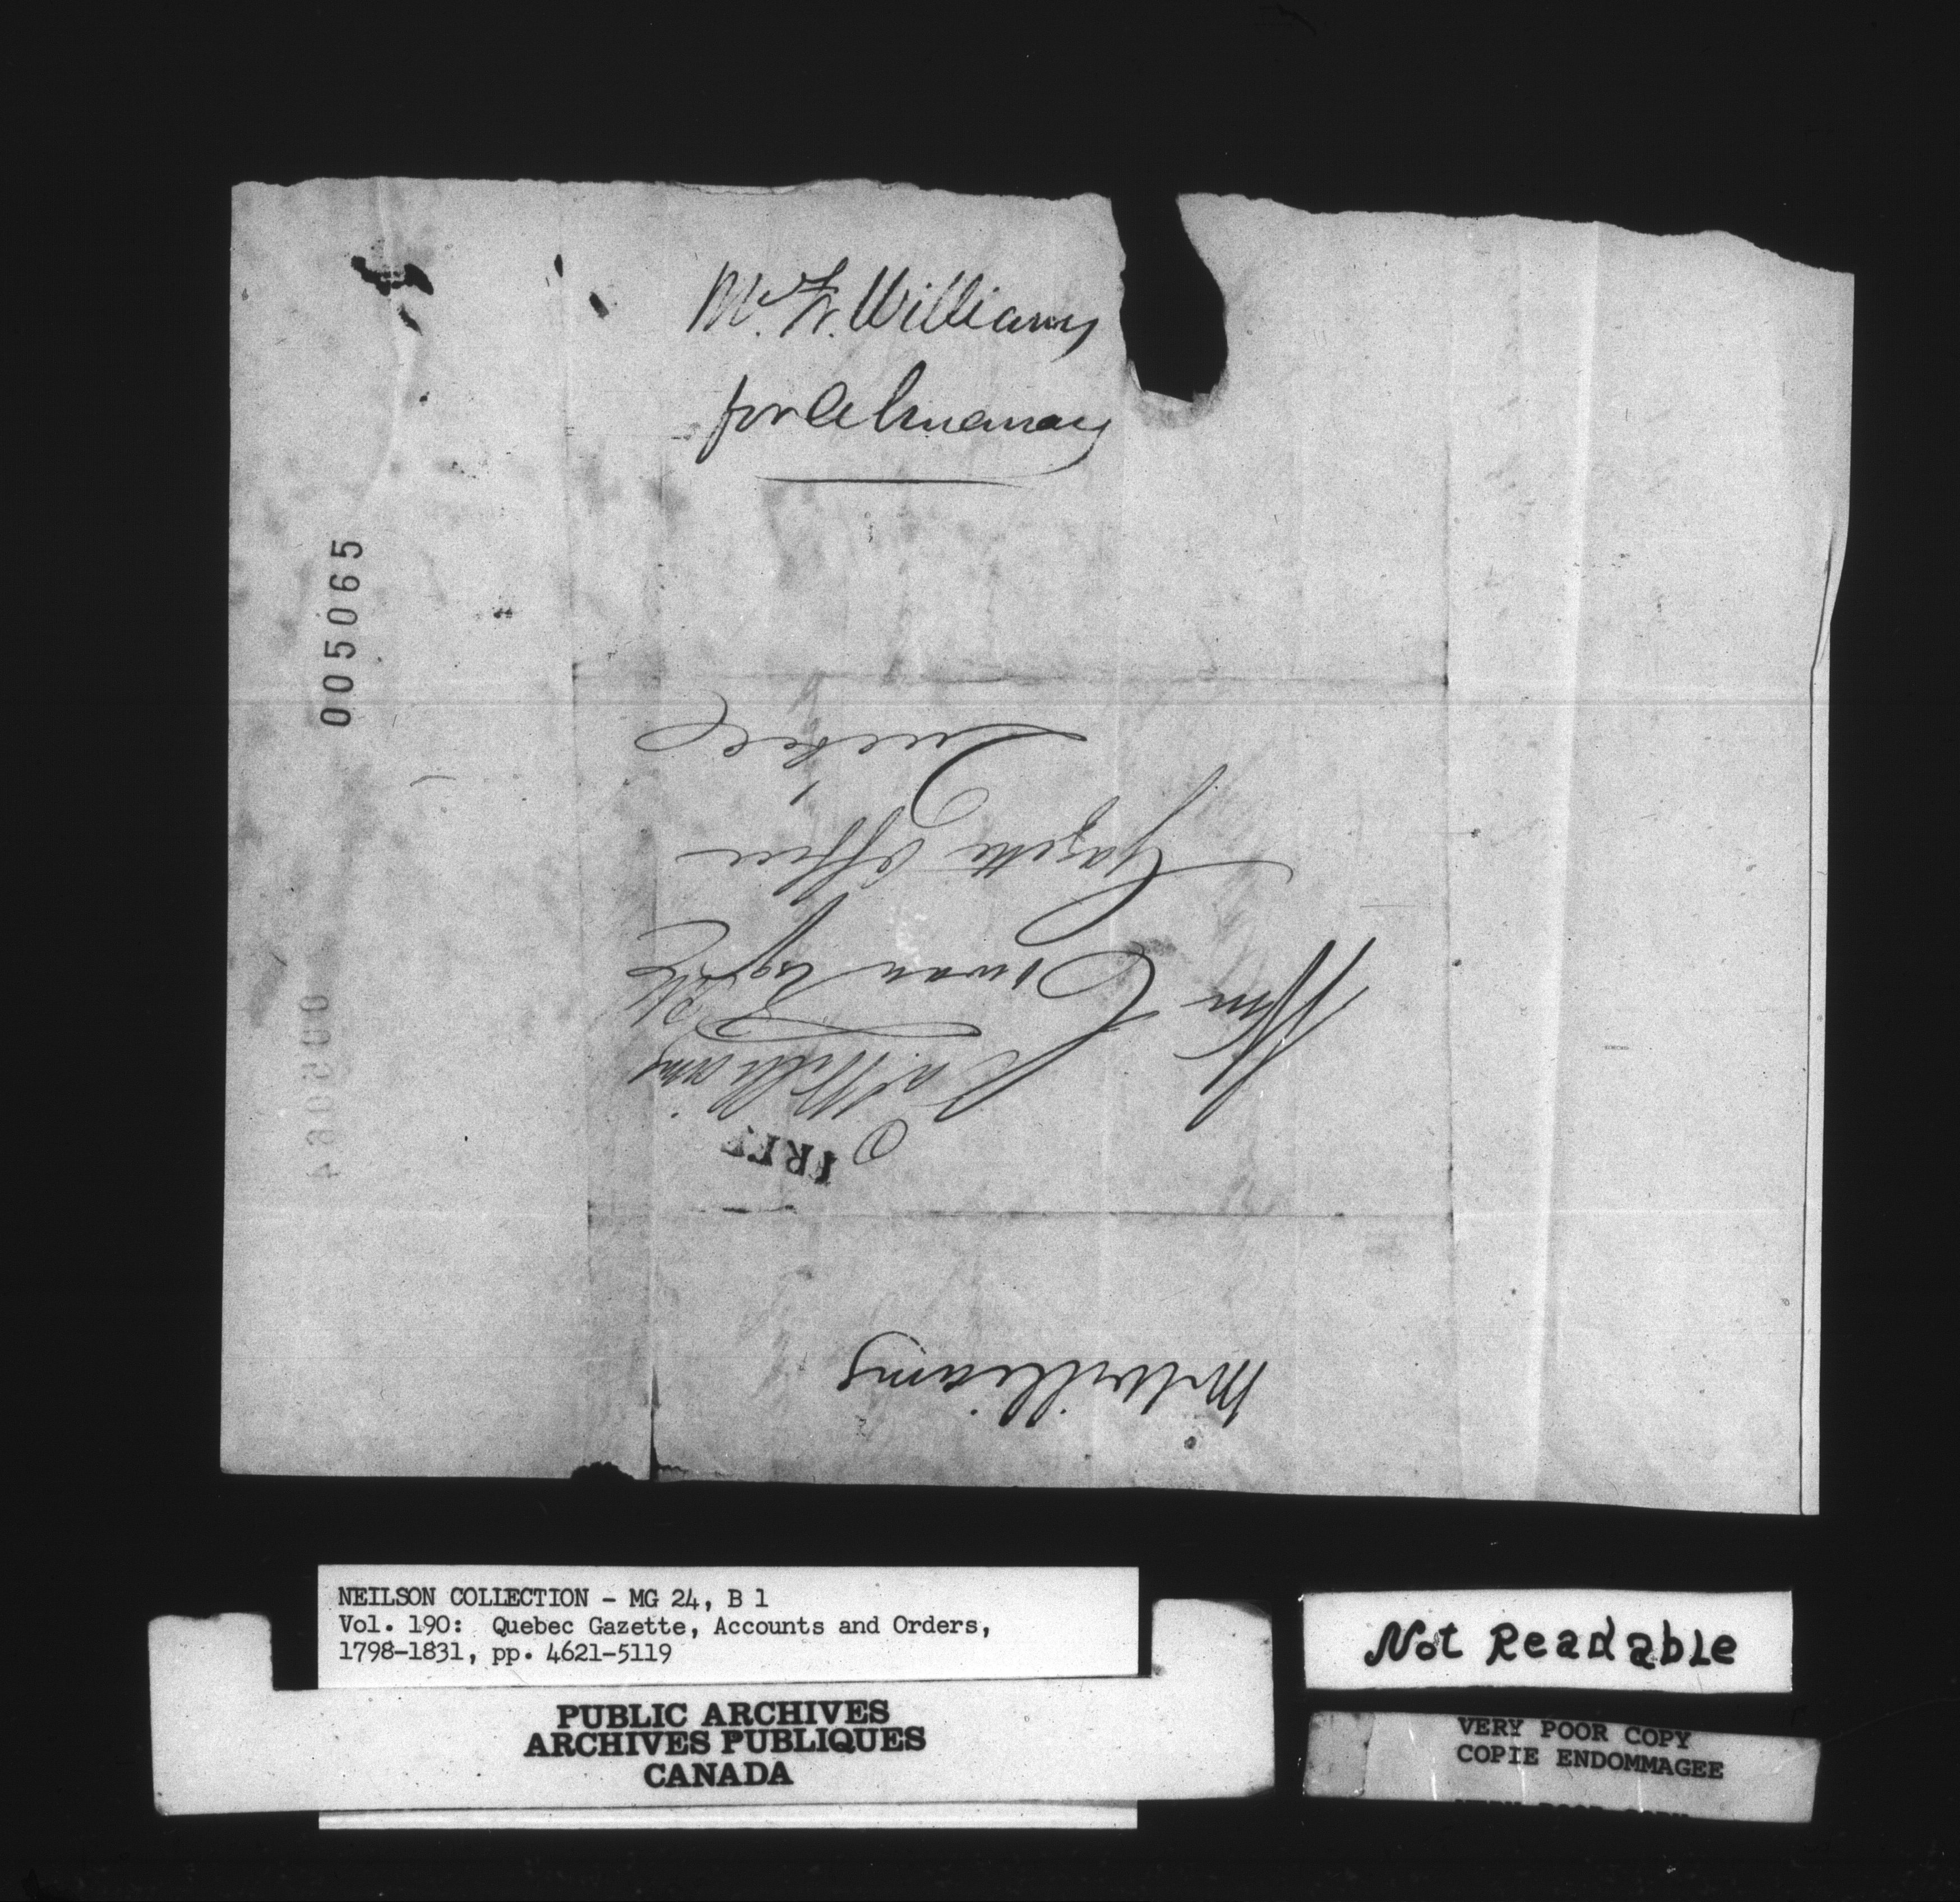 Mr. Fr. Williams
for Almanacs
005065
Quebec
Gazette Office
Wm Cowan Esqr
Williams
005064
Mr Williams
NEILSON COLLECTION - MG 24, B 1
Vol. 190: Quebec Gazette, Accounts and Orders,
1798-1831, pp. 4621-5119
PUBLIC ARCHIVES
ARCHIVES PUBLIQUES
CANADA
Not Readable
VERY POOR COPY
COPIE ENDOMMAGEE